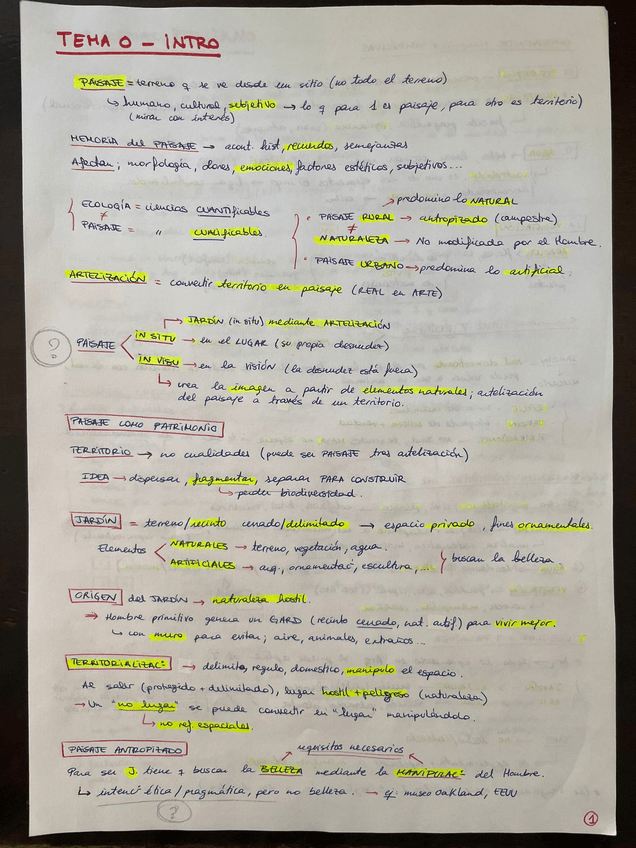 TEMA 0 - INTRO
PAISAJE = terreno q se ve desde un sitio (no todo el terreno)
↳ humano, cultural, subjetivo → lo q para 1 es paisaje, para otro es territorio)
(mirar con interés)
MEMORIA del PAISAJE → acont. hist, recuerdos, semejanzas
Afectan; morfología, olores, emociones, factores estéticos, subjetivos...
ECOLOGÍA = ciencias CUANTIFICABLES
≠
PAISAJE = " CUALIFICABLES
predomina lo NATURAL
• PAISAJE RURAL → antropizado (campestre)
≠
NATURALEZA → No modificada por el Hombre.
• PAISAJE URBANO → predomina lo artificial.
ARTELIZACIÓN = convertir territorio en paisaje (REAL en ARTE)
JARDÍN (in situ) mediante ARTELIZACIÓN
? PAISAJE
IN SITU → en el LUGAR (su propia desnudez)
IN VISU → en la VISIÓN (la desnudez está fuera)
↳ crea la imagen a partir de elementos naturales; artelización
del paisaje a través de un territorio.
PAISAJE COMO PATRIMONIO
TERRITORIO → no cualidades (puede ser PAISAJE tras artelización)
IDEA → dispersar, fragmentar, separar PARA CONSTRUIR
↳ perder biodiversidad.
JARDÍN = terreno/recinto cerrado/delimitado → espacio privado, fines ornamentales.
Elementos
NATURALES → terreno, vegetación, agua.
ARTIFICIALES → arq., ornamentac., escultura, ...
buscan la belleza.
ORIGEN del JARDÍN → naturaleza hostil.
⇒ Hombre primitivo genera un GARD (recinto cerrado, nat. artif) para vivir mejor.
↳ con muro para evitar; aire, animales, extraños...
TERRITORIALIZACº → delimito, regulo, domestico, manipulo el espacio.
Al salir (protegido + delimitado), lugar hostil + peligroso (naturaleza)
→ Un "no lugar" se puede convertir en "lugar" manipulándolo.
↳ no ref. espaciales.
PAISAJE ANTROPIZADO
requisitos necesarios
Para ser J. tiene q buscar la BELLEZA mediante la MANIPULACº del Hombre.
↳ intencº ética/pragmática, pero no belleza. → ej: museo Oakland, EEUU
?
1